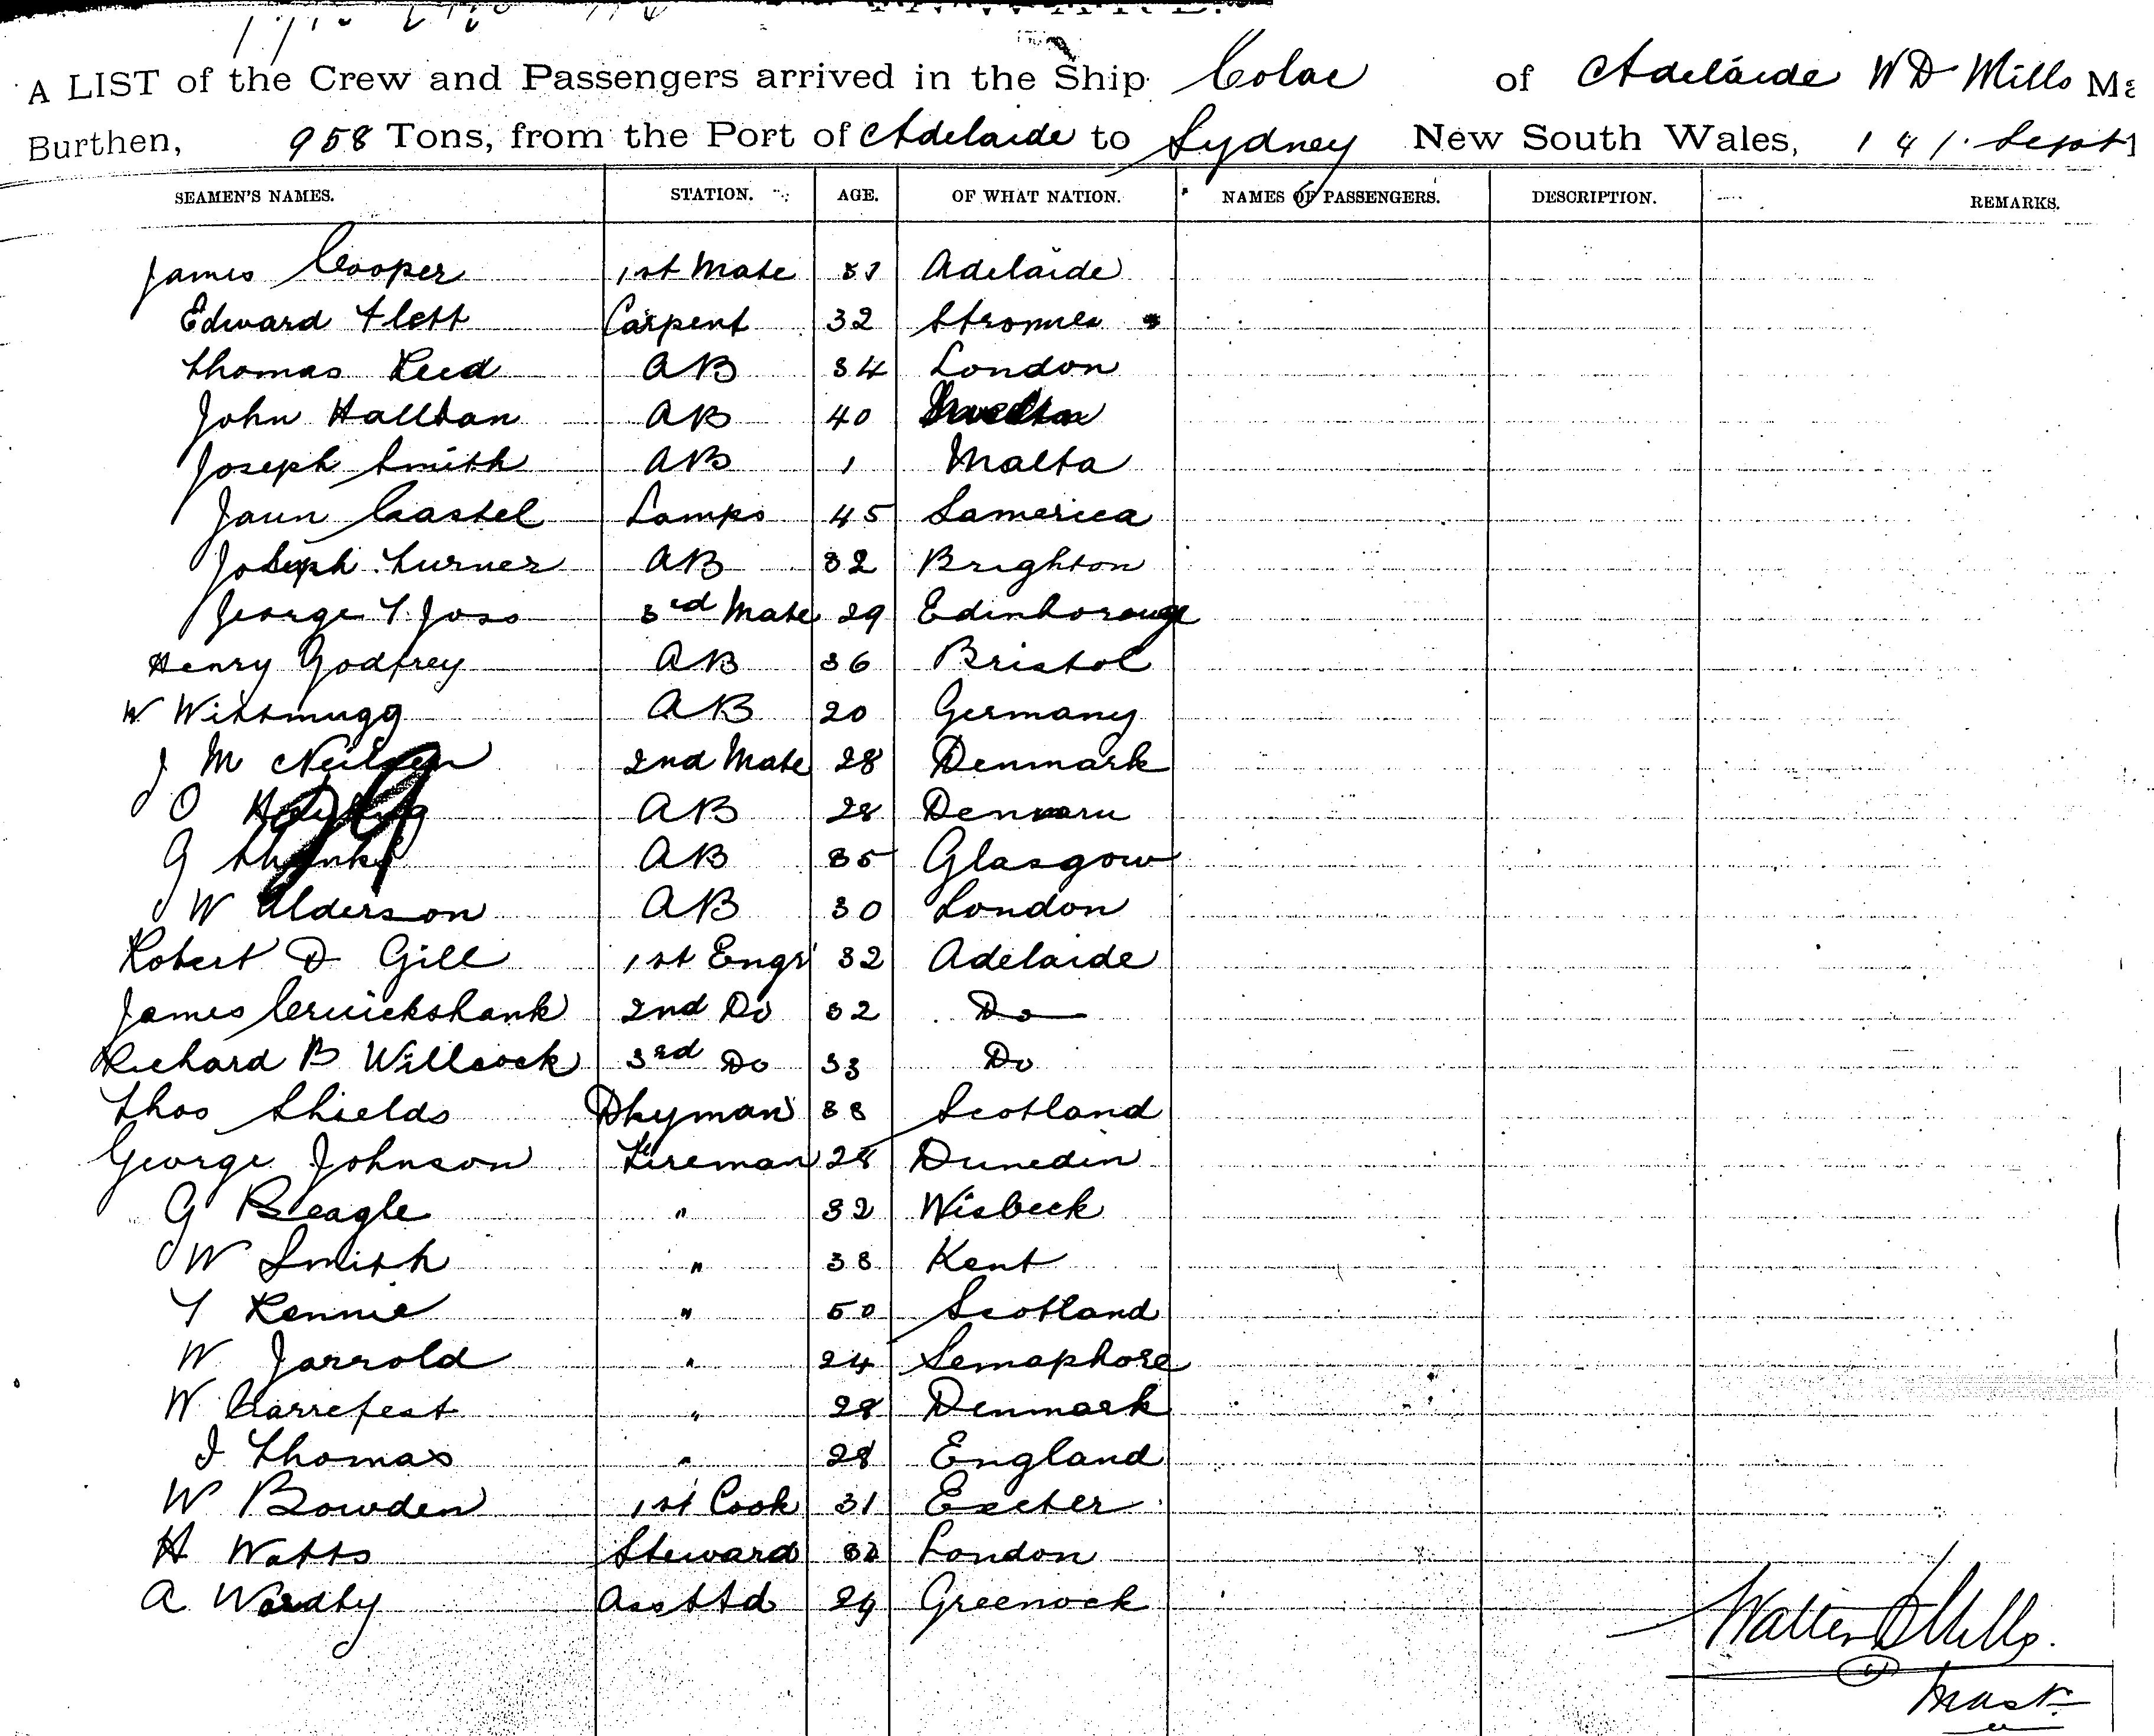 A LIST of the Crew and Passengers arrived in the Ship Colac of Adelaide W D Mills Ma
Burthen, 958 Tons, from the Port of Adelaide to Sydney New South Wales, 14 Sept 1
SEAMEN'S NAMES. STATION. AGE. OF WHAT NATION. NAMES OF PASSENGERS. DESCRIPTION. REMARKS.
James Cooper 1st Mate 31 Adelaide
Edward Flett Carpent 32
Thomas Reed AB 34 London
John Halltan AB 40
Joseph Smith AB 1 Malta
Jaun Castel Lamps 45 Samerica
Joseph Turner AB 32 Brighton
George T Joss 3rd Mate 29 Edinhoroug
Henry Godfrey AB 36 Bristol
W Wittmugg AB 20 Germany
J M Neilsen 2nd Mate 28 Denmark
O AB 28
G Shanks AB 35 Glasgow
W Alderson AB 30 London
Robert D Gill 1st Engr 32 Adelaide
James Cruickshank 2nd Do 32 Do
Richard B Willcock 3rd Do 33 Do
Thos Shields Dkyman 38 Scotland
George Johnson Fireman 28 Dunedin
G Beagle " 32 Wisbeck
W Smith " 38 Kent
T Rennie " 50 Scotland
W Jarrold " 24 Semaphore
W Carrefest " 28 Denmark
J Thomas " 28 England
W Bowden 1st Cook 31 Exeter
H Watts Steward 32 London
A Wardby Asst Std 29 Greenock
Walter D Mills.
Mast